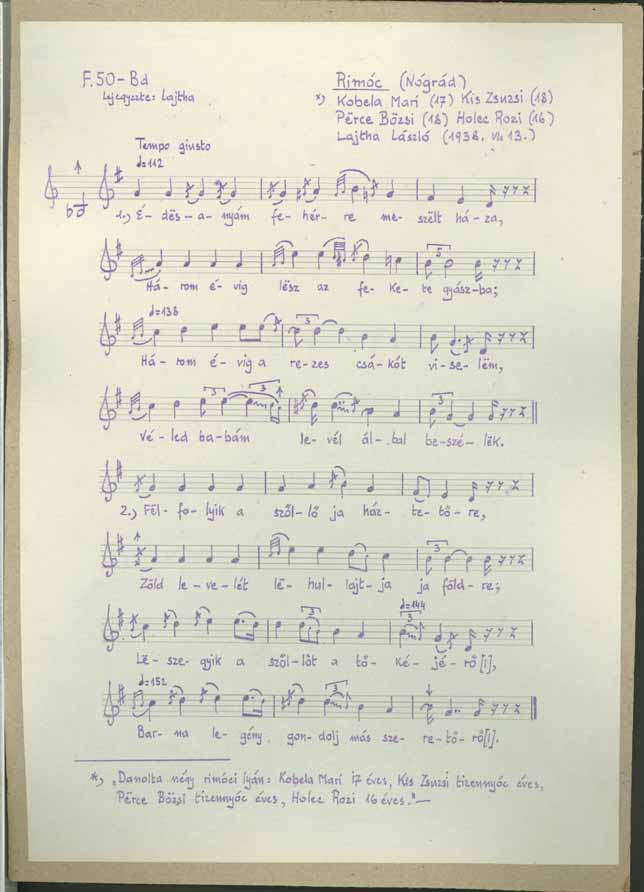 F.50-Bd
Lejegyezte: Lajtha
Rimóc (Nógrád)
*) Kobela Mari (17) Kis Zsuzsi (18)
Përce Bözsi (18) Holec Rozi (16)
Lajtha László (1938. VII. 13.)
Tempo giusto
♩=112
1.) É- dës- a- nyám fe- hér- re me- szëlt há- za,
5
Há- rom é- vig lësz az fe- ke- te gyász- ba;
♩=138
3
Há- rom é- vig a re- zes csá- kót vi- se- lëm,
3 3 3
Vé- led ba- bám le- vél ál- tal be- szé- lëk.
2.) Fël- fo- lyik a szől- lő ja ház- te- tő- re,
3
Zöld le- ve- lét lë- hul- lajt- ja ja föld- re;
♩=144
3 3
Lë- sze- gyik a szől- lőt a tő- ké- jé- rő[l],
♩=152
3
Bar- na le- gény gon- dolj más sze- re- tő- rő[l].
*) „Danolta négy rimóci lyán: Kobela Mari 17 éves, Kis Zsuzsi tizennyóc éves,
Përce Bözsi tizennyóc éves, Holec Rozi 16 éves."—